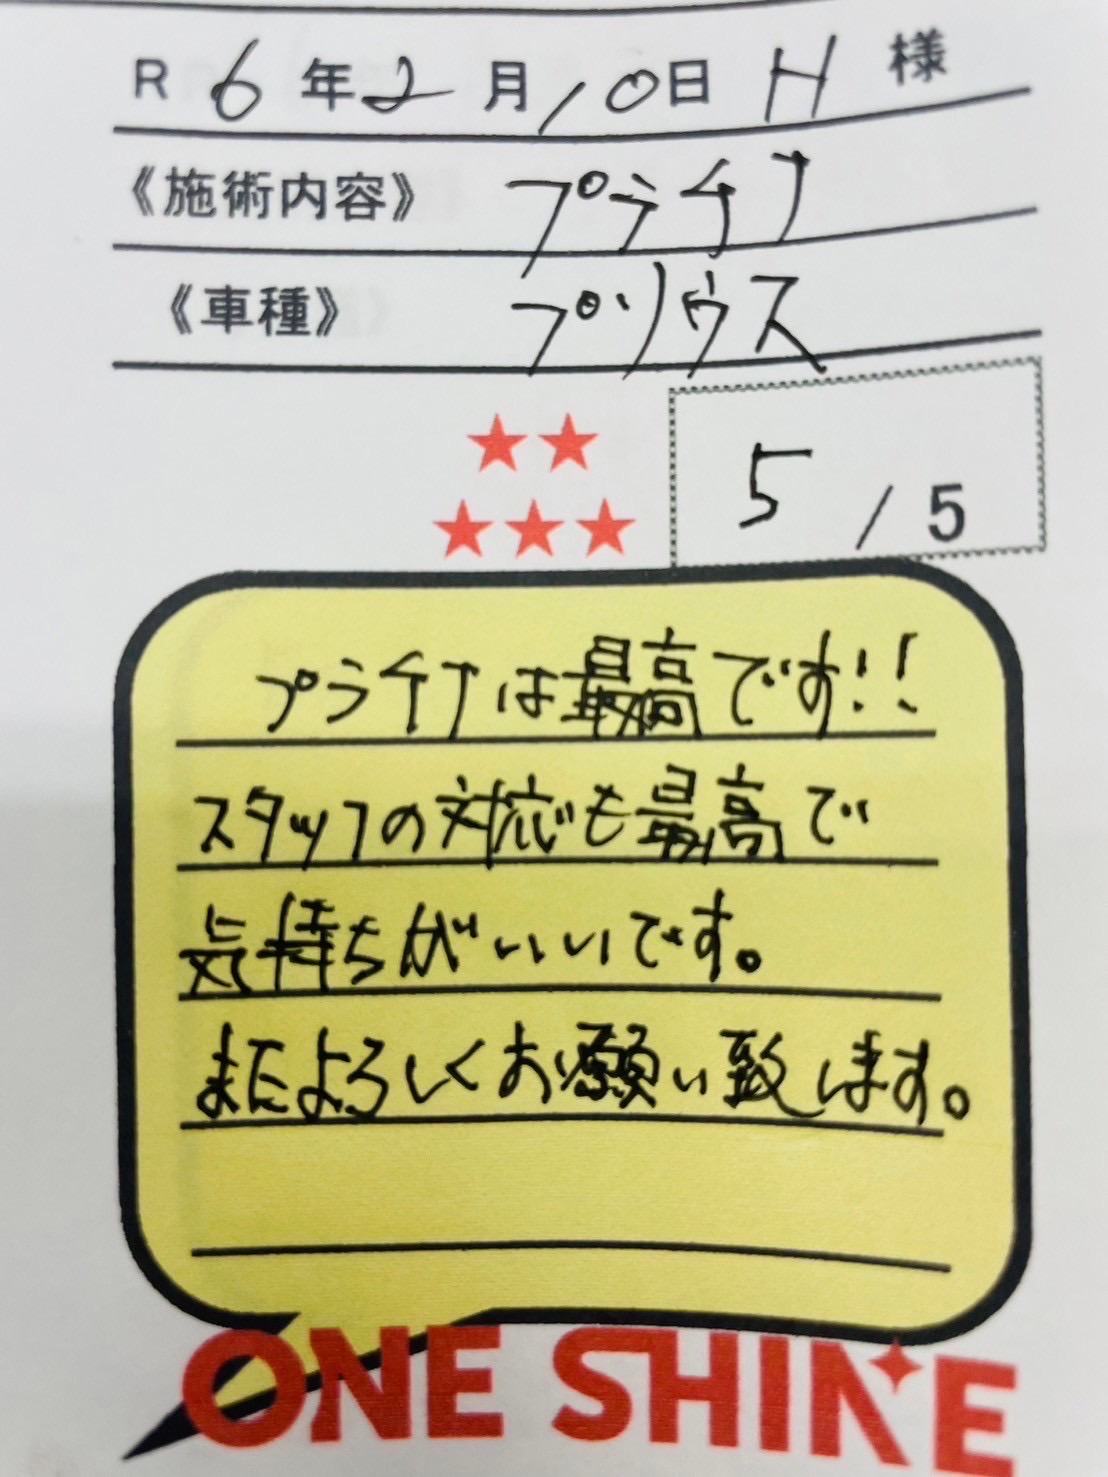 R 6年2月10日 H 様
《施術内容》 プラチナ
《車種》 プリウス
5/5
プラチナは最高です!!
スタッフの対応も最高で
気持ちがいいです。
またよろしくお願い致します。
ONE SHINE